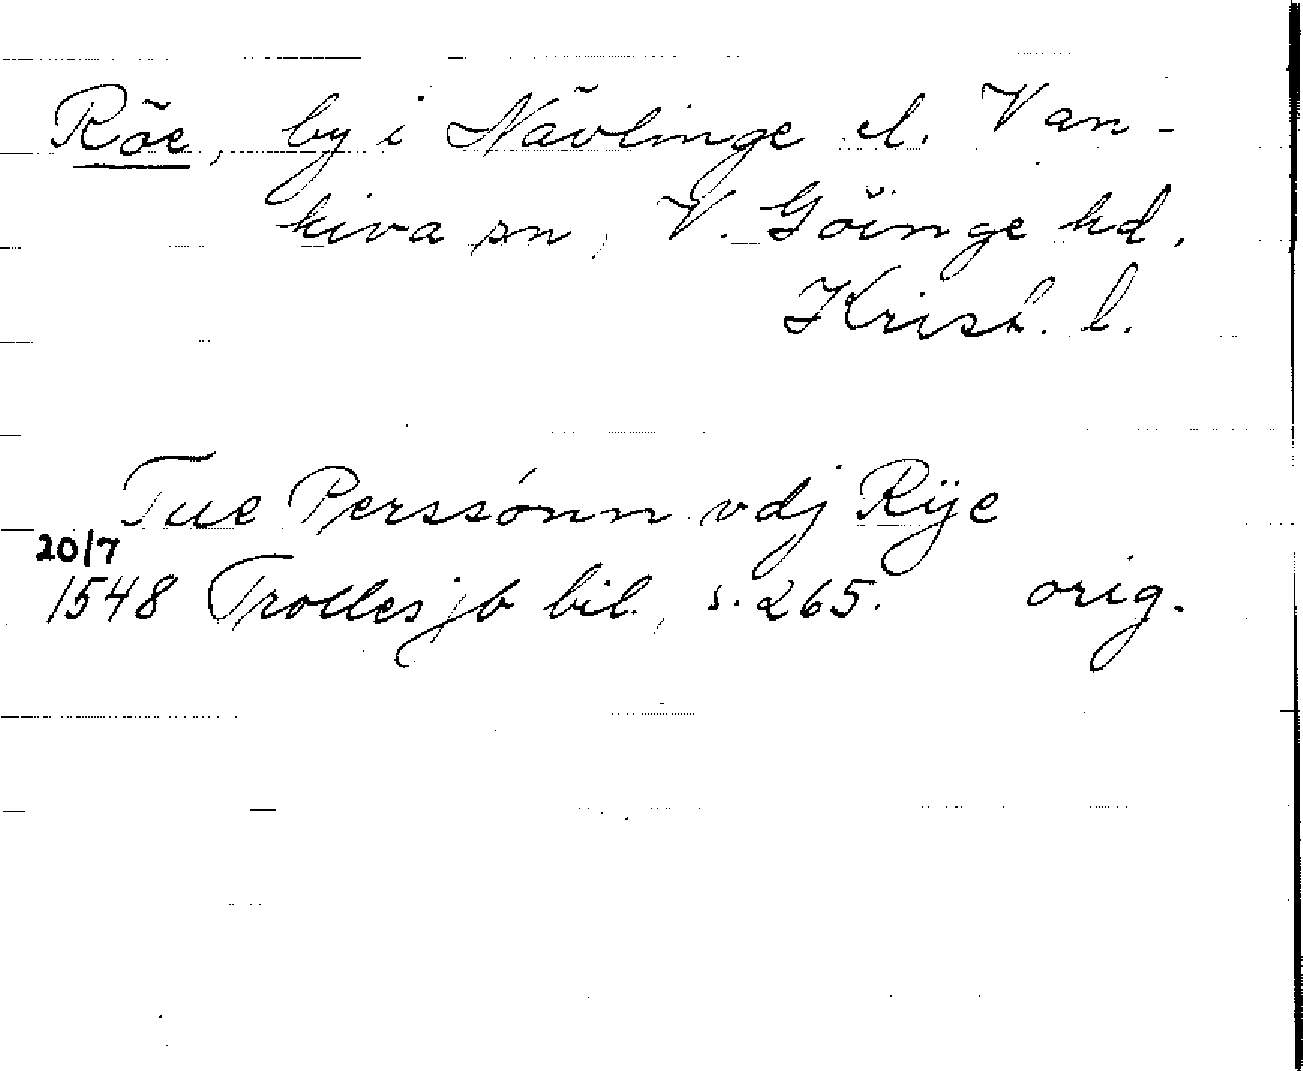 Röe, by i Nävlinge el. Van-
kiva sn, V. Göinge hd,
Krist. l.
Tue Perssönn vdj Rÿe
20/7
1548 Trolles jb bil, s. 265. orig.